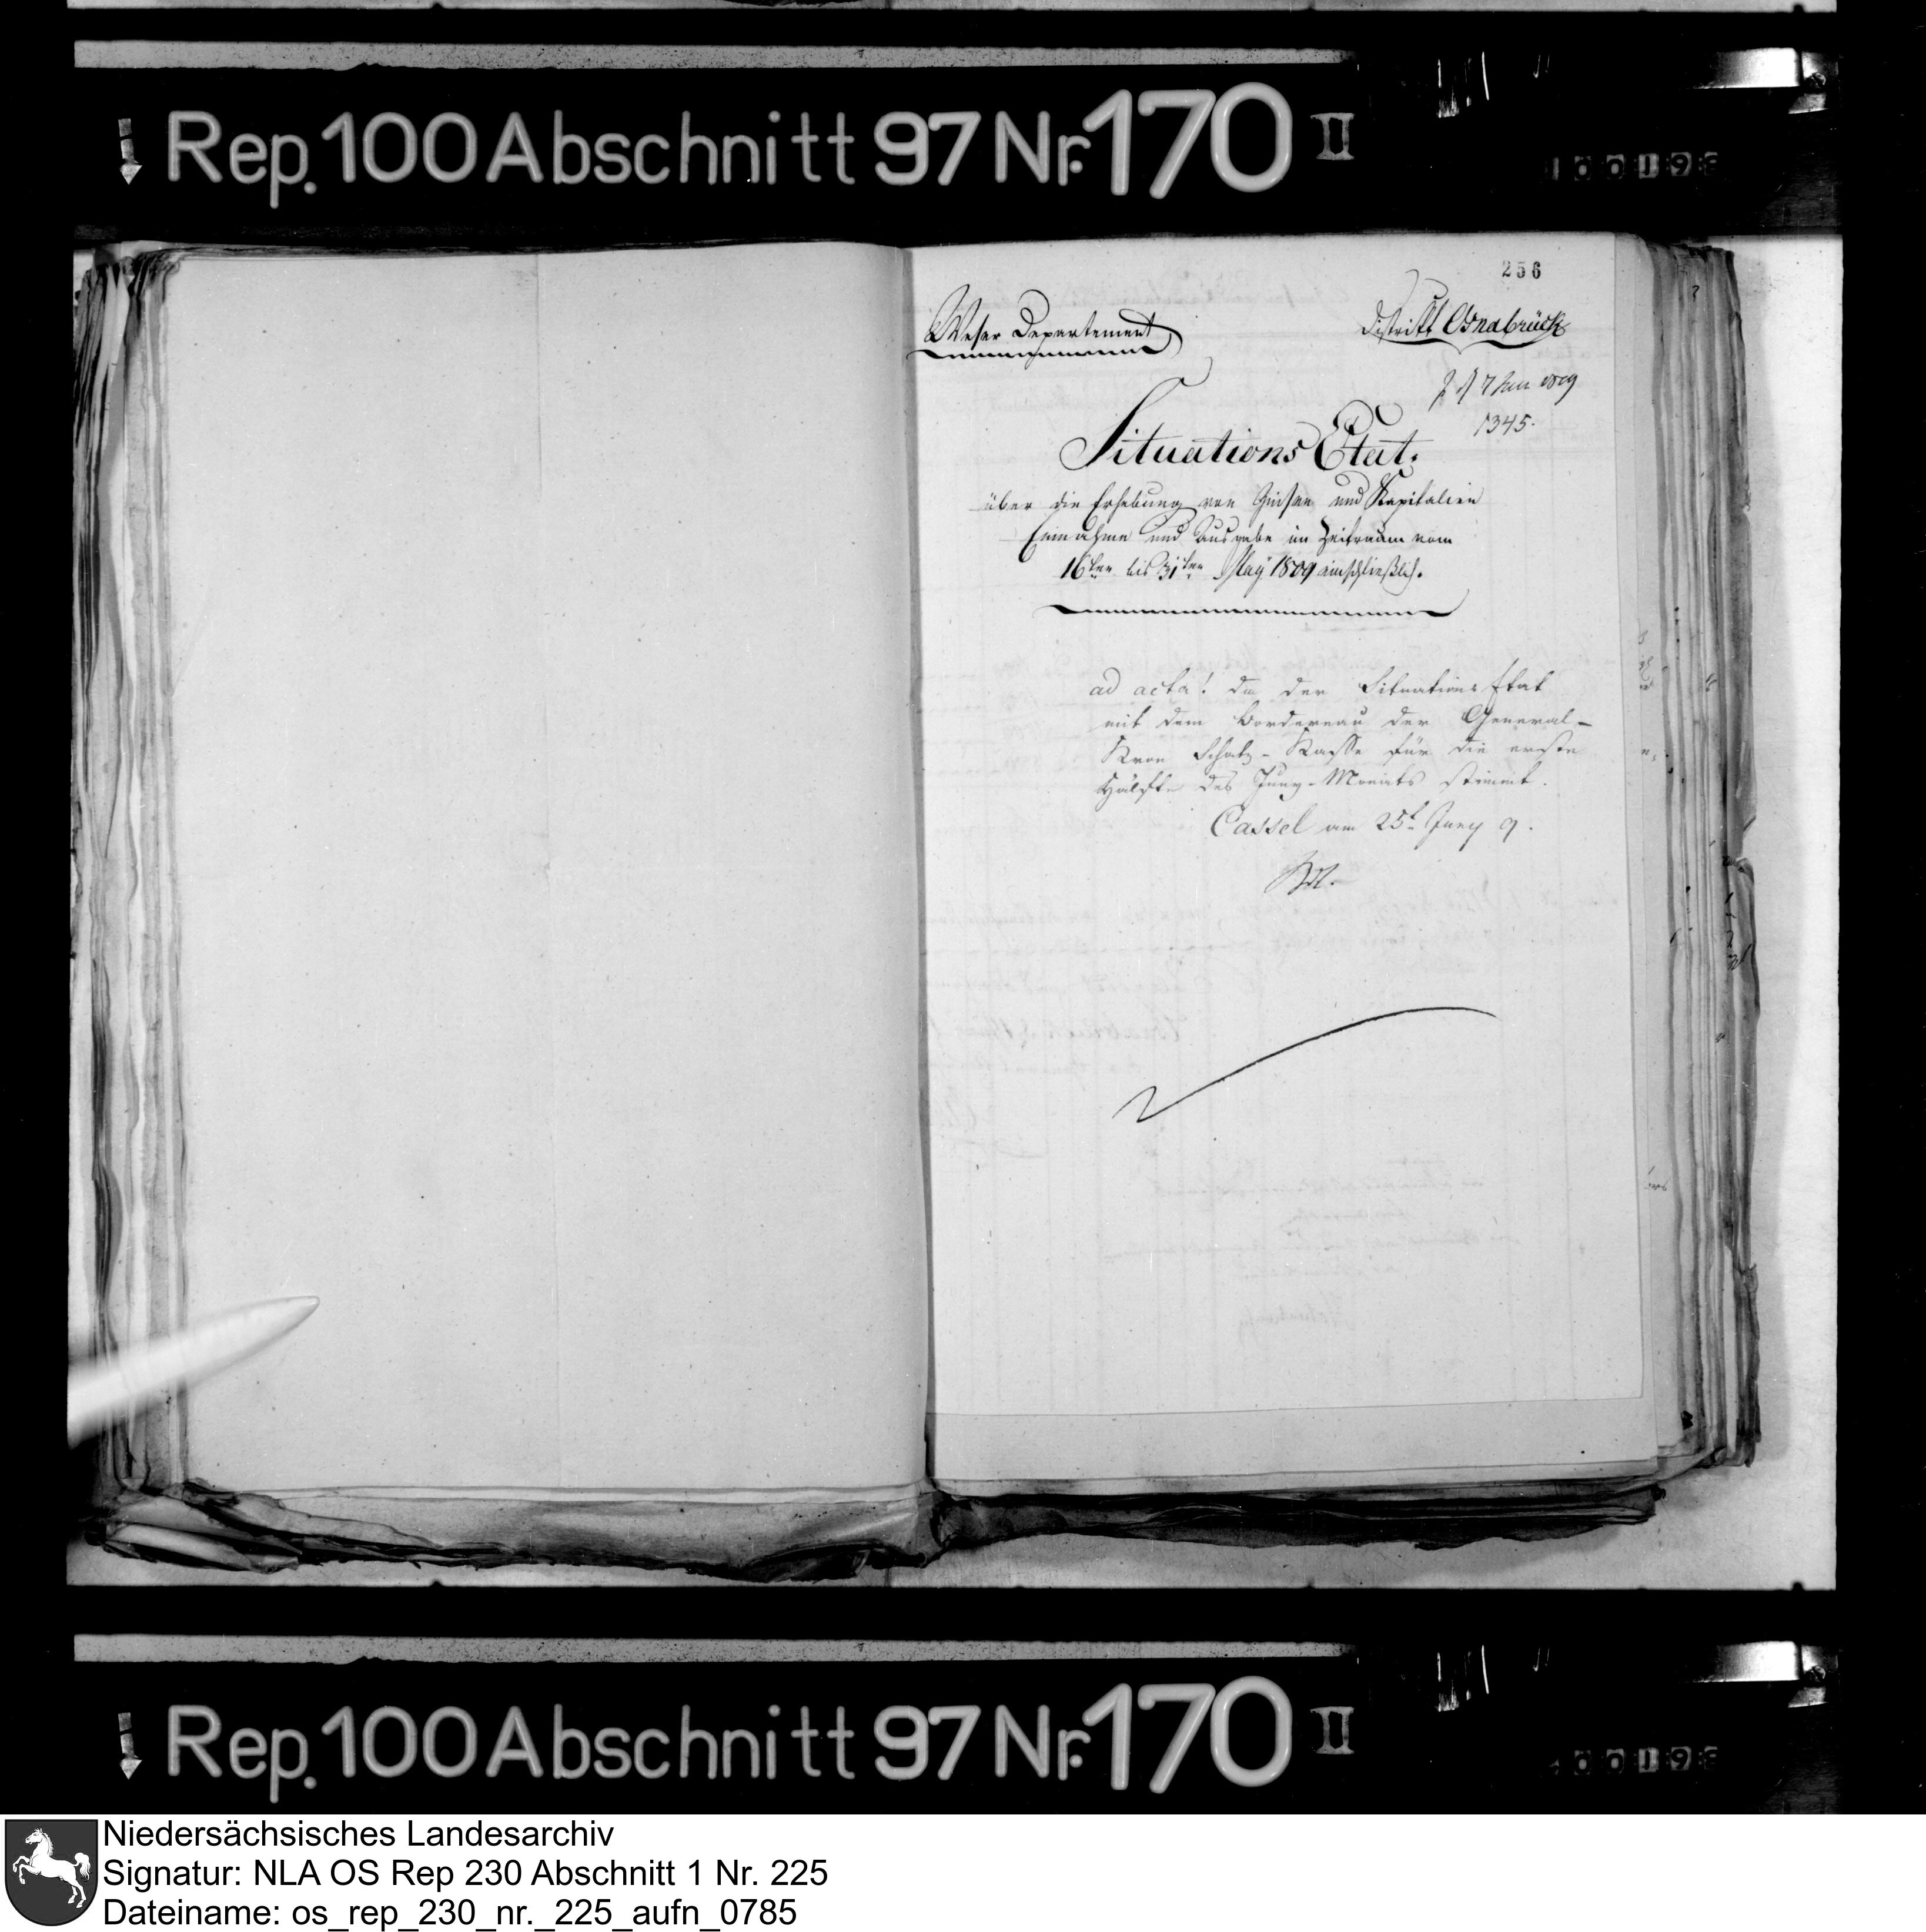 Rep. 100 Abschnitt 97 Nr. 170 II
256
Weser Departement
Distrikt Osnabrück
7 Jun 1809
1345.
Situations Etat.
über die Erhebung von Zinsen und Kapitalien
Einnahme und Ausgabe im Zeitraum vom
16ten bis 31ten May 1809 einschließlich.
ad acta! da der Situations Etat
mit dem Bordereau der General-
Kron Schatz-Kasse für die erste
Hälfte des Juny-Monats stimmt.
Cassel am 25t Juny 9.
Rep. 100 Abschnitt 97 Nr. 170 II
Niedersächsisches Landesarchiv
Signatur: NLA OS Rep 230 Abschnitt 1 Nr. 225
Dateiname: os_rep_230_nr._225_aufn_0785